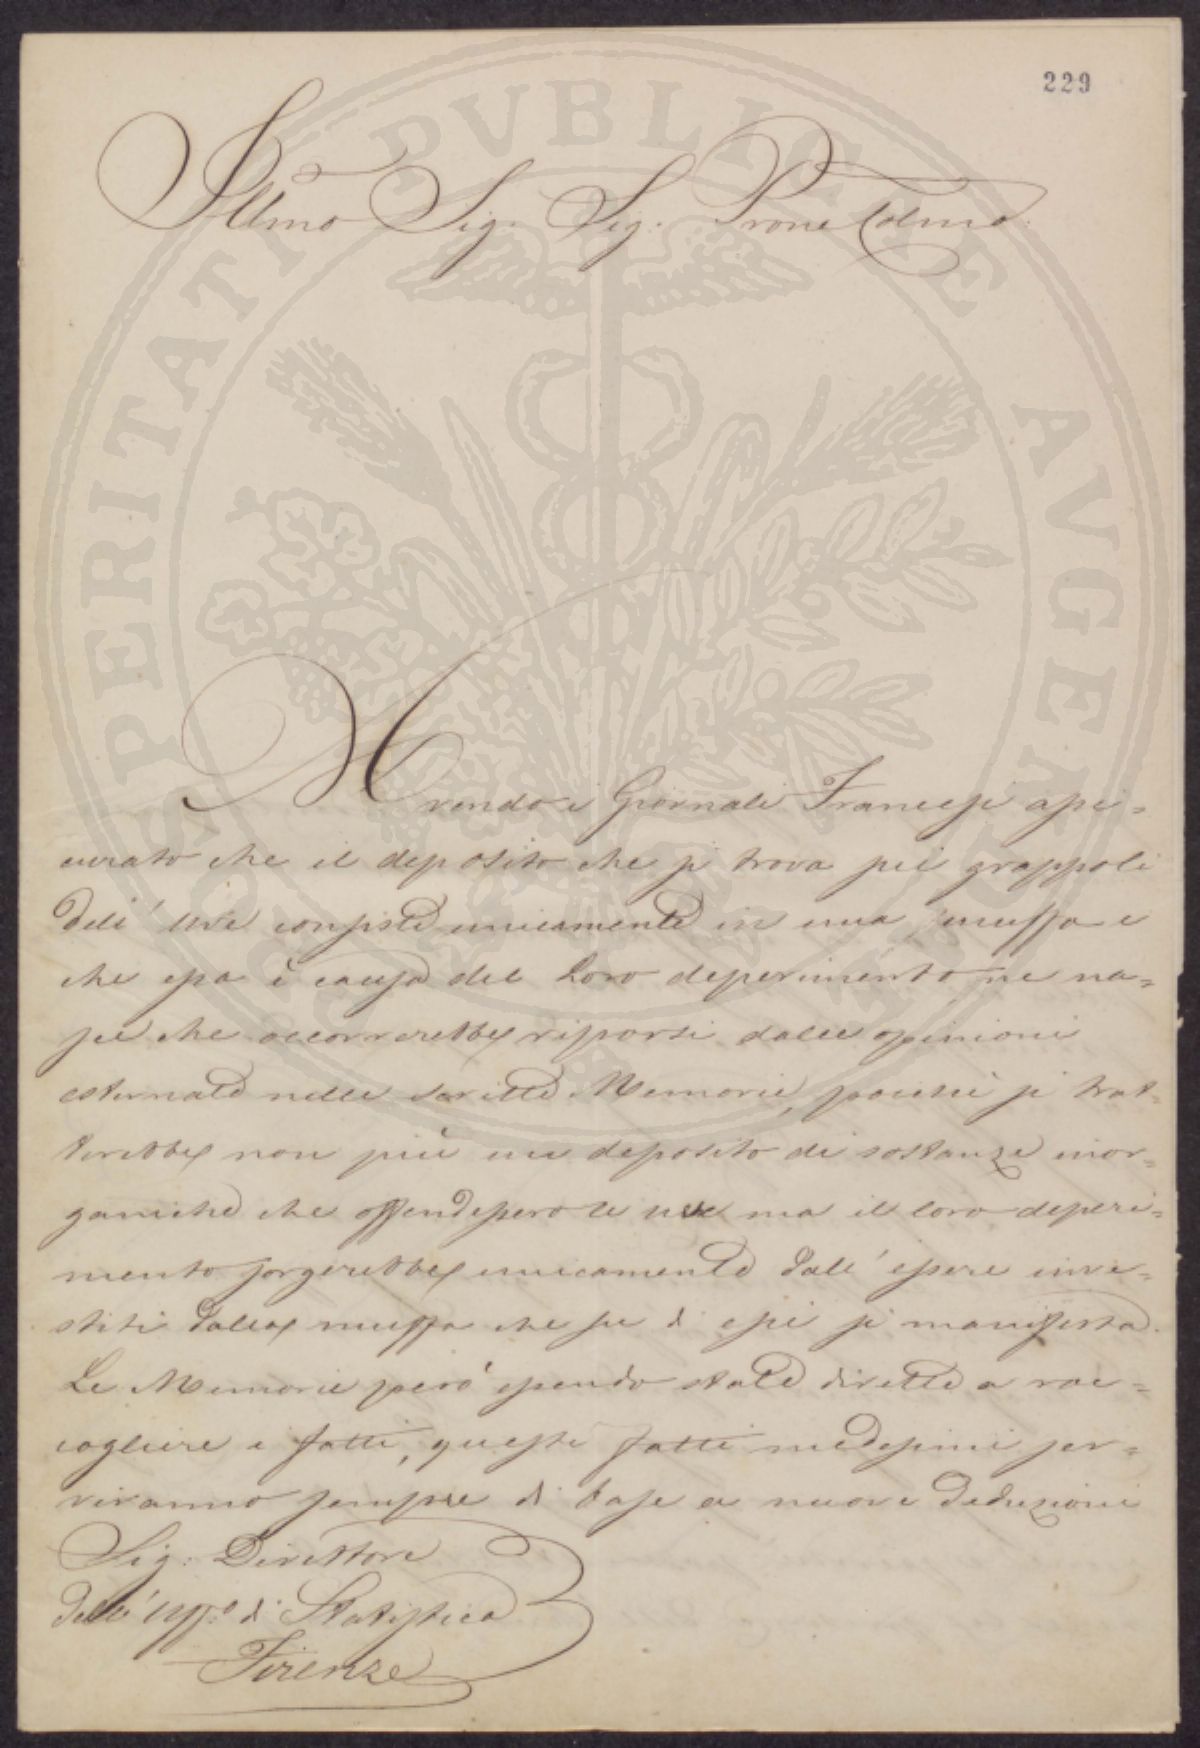 229
Illmo Sig. Sig. Prone Colmo.
Avendo i Giornali Francesi assi=
curato che il deposito che si trova sui grappoli
dell' uve consiste unicamente in una muffa e
che essa è causa del loro deperimento ne na=
sce che occorrerebbe riporsi dalle opinioni
esternate nelle scritte Memorie, poichè si trat=
terebbe non più un deposito di sostanze inor=
ganiche che offendessero le uve ma il loro deperi=
mento sorgerebbe unicamente dall' essere inve=
stiti dalla muffa che su di essi si manifesta.
Le Memorie però essendo state dirette a rac=
cogliere i fatti, questi fatti medesimi ser=
viranno sempre di base a nuove deduzioni
Sig. Direttore
dell' Uffo. di Statistica
Firenze
PROSPERITATI PVBLICAE AVGENDAE